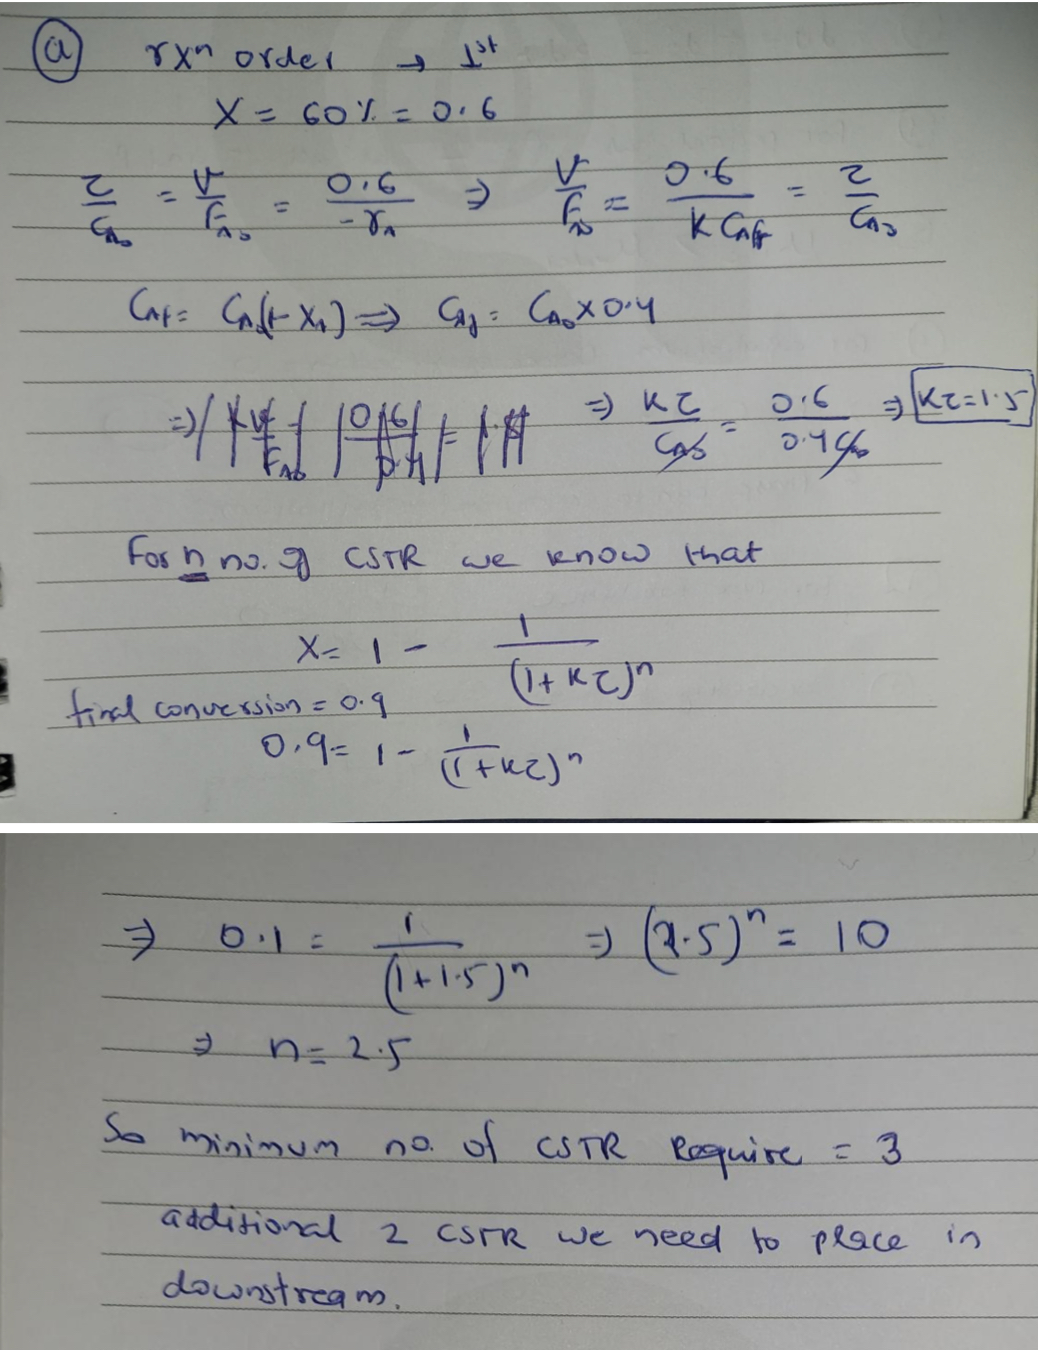 (a) rxn order → 1st
X = 60% = 0.6
τ/C_A0 = V/F_A0 = 0.6/-r_A ⇒ V/F_A0 = 0.6/K C_Af = τ/C_A0
C_Af = C_A0(1-X_A) ⇒ C_Af = C_A0 × 0.4
⇒ ⇒ Kτ/C_A0 = 0.6/0.4 C_A0 ⇒ Kτ=1.5
For n no. of CSTR we know that
X = 1 - 1/(1+Kτ)^n
final conversion = 0.9
0.9 = 1 - 1/(1+Kτ)^n
⇒ 0.1 = 1/(1+1.5)^n ⇒ (2.5)^n = 10
⇒ n = 2.5
So minimum no. of CSTR Require = 3
additional 2 CSTR we need to place in
downstream.